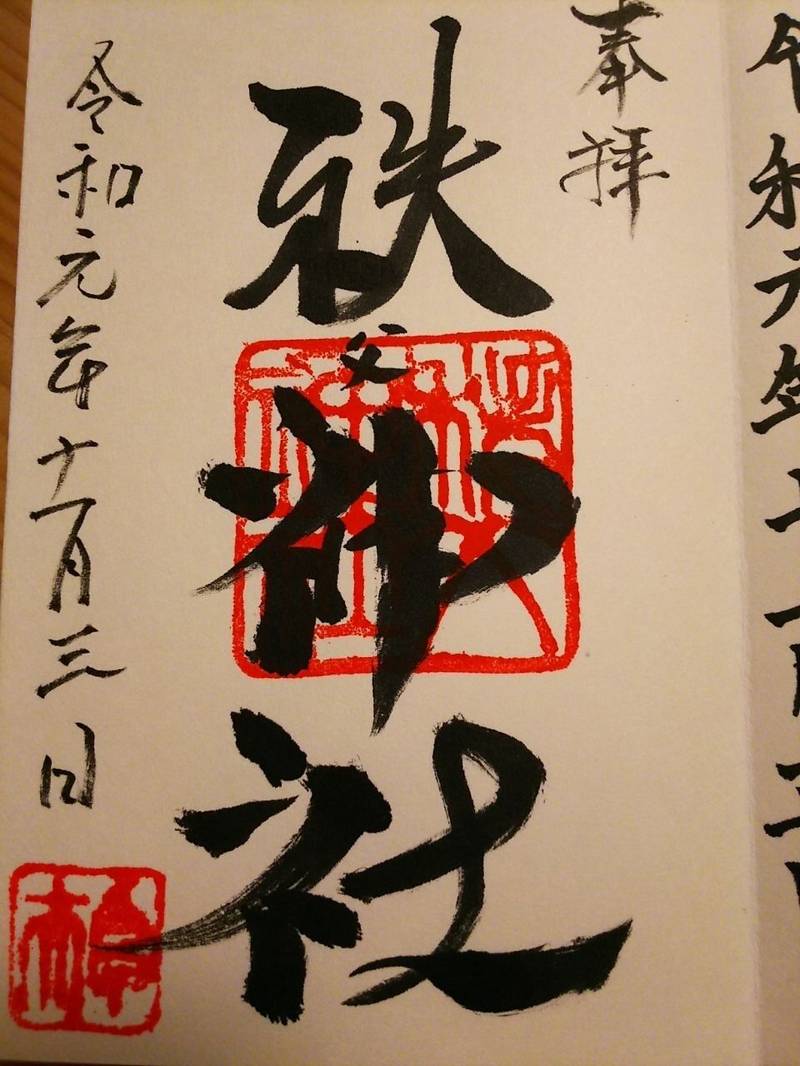 令和元年十一月三日
奉拝
秩父神社
令和元年十一月三日